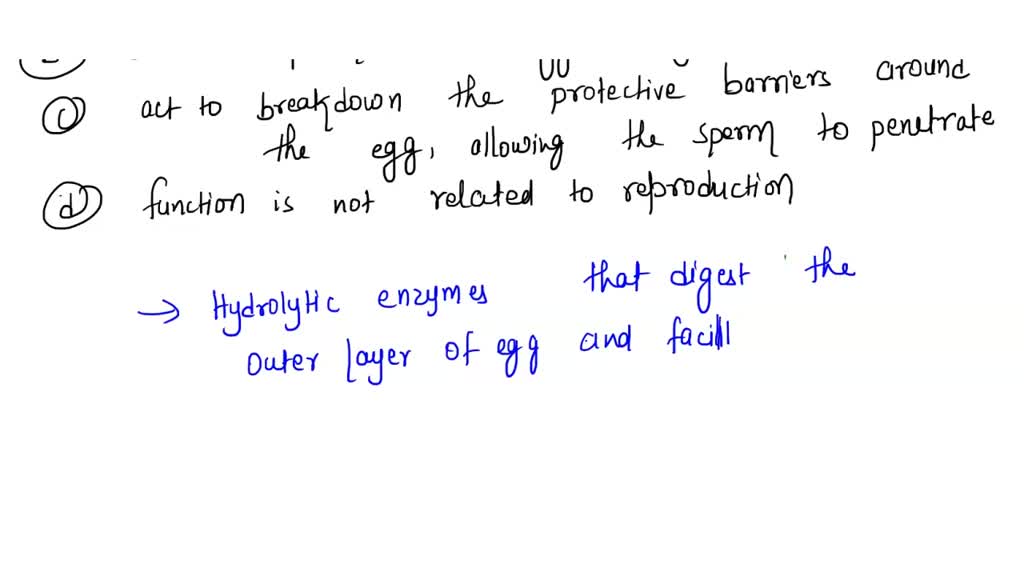 (c) act to breakdown the protective barriers around
the egg, allowing the sperm to penetrate
(d) function is not related to reproduction
→ Hydrolytic enzymes that digest the
outer layer of egg and facill